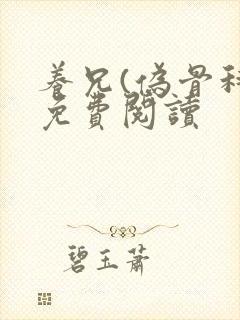 養兄(偽骨科
免費閱讀
碧玉蕭